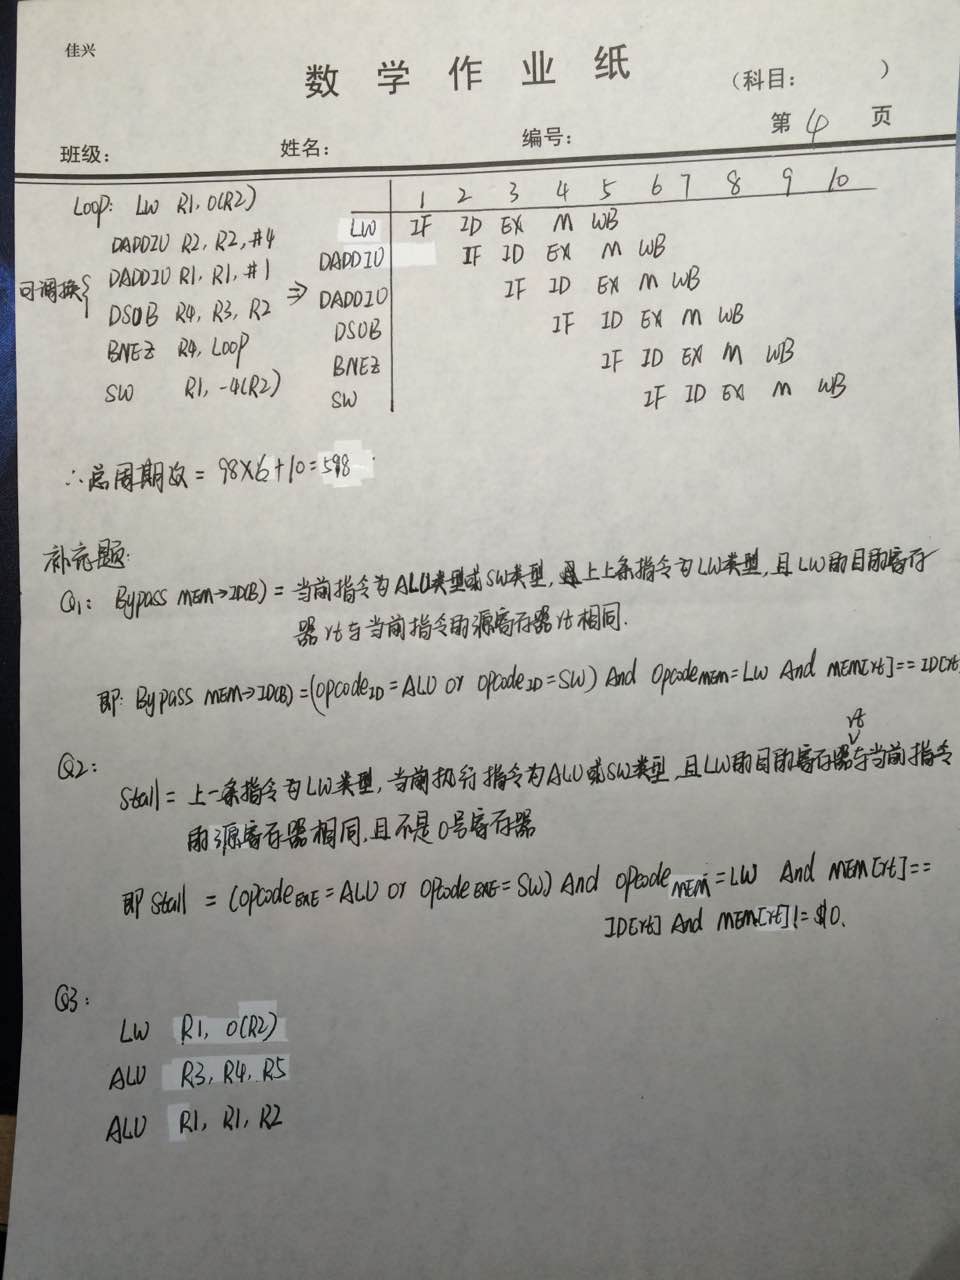 佳兴
数学作业纸
(科目: )
班级: 姓名: 编号: 第 4 页
1 2 3 4 5 6 7 8 9 10
Loop: LW R1, 0(R2)
DADDIU R2, R2, #4
可调换{ DADDIU R1, R1, #1 ⇒
DSUB R4, R3, R2
BNEZ R4, Loop
SW R1, -4(R2)
LW IF ID EX M WB
DADDIU IF ID EX M WB
DADDIU IF ID EX M WB
DSUB IF ID EX M WB
BNEZ IF ID EX M WB
SW IF ID EX M WB
∴总周期数 = 98×6+10=598
补充题:
Q1: Bypass MEM→ID(B) = 当前指令为ALU类型或SW类型, 且上上条指令为LW类型, 且LW的目的寄存
器rt与当前指令的源寄存器rt相同.
即: Bypass MEM→ID(B) = (opcodeID = ALU or opcodeID = SW) And OpcodeMEM = LW And MEM[rt] == ID[rt]
Q2:
Stall = 上一条指令为LW类型, 当前执行指令为ALU或SW类型, 且LW的目的寄存器rt与当前指令
的源寄存器相同, 且不是0号寄存器
即 Stall = (opcodeEXE = ALU or opcodeEXE = SW) And opcodeMEM = LW And MEM[rt] ==
ID[rt] And MEM[rt] != $0.
Q3:
LW R1, 0(R2)
ALU R3, R4, R5
ALU R1, R1, R2